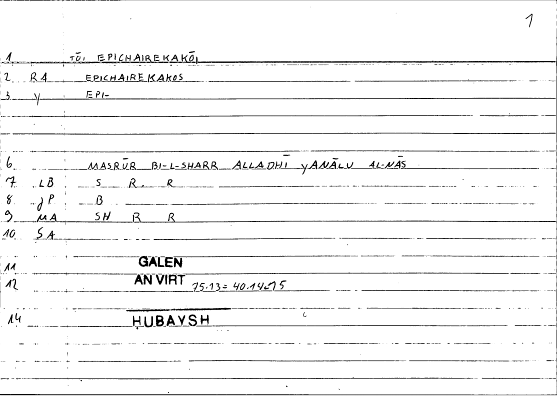 1
1 TŌI EPICHAIREKAKŌI
2 RA EPICHAIREKAKOS
3 Y EPI-
6 MASRŪR BI-L-SHARR ALLADHĪ YANĀLU AL-NĀS
7 LB S R. R
8 JP B
9 MA SH R R
10 SA
11 GALEN
12 AN VIRT 75.13 = 40.14-15
14 ḤUBAYSH